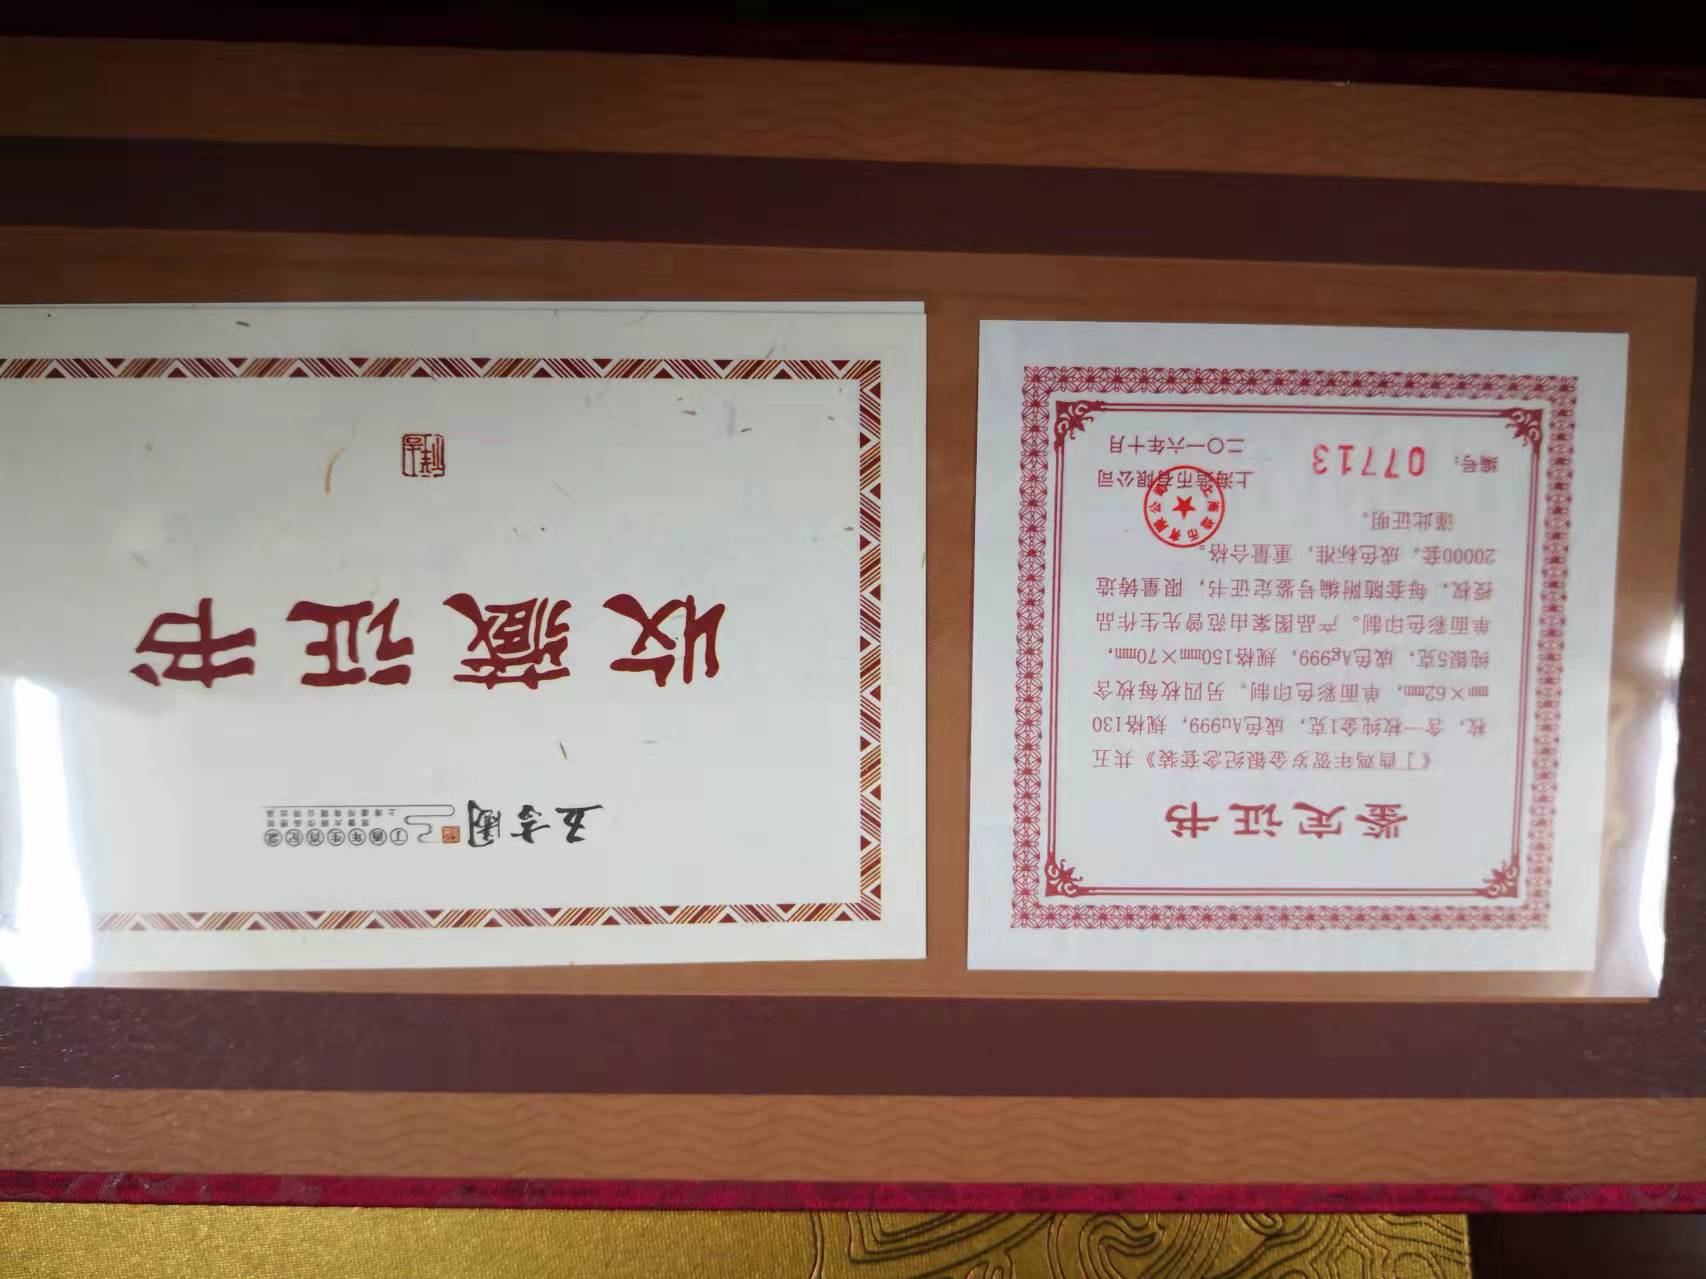 鉴定证书
《丁酉鸡年贺岁金银纪念套装》共五
枚，含一枚纯金1克，成色Au999，规格130
mm×62mm，单面彩色印制。另四枚每枚含
纯银5克，成色Ag999，规格150mm×70mm，
单面彩色印制。产品图案由范曾先生作品
授权，每套随附编号鉴定证书，限量铸造
20000套。成色标准，重量合格。
谨此证明。
上海造币有限公司
编号：07713
二〇一六年十月
丁酉年生肖纪念
收藏证书